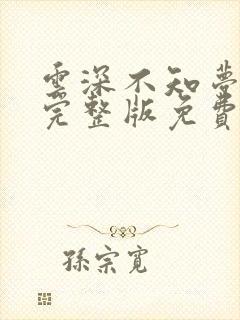 雲深不知夢
完整版免費
孫宗寬